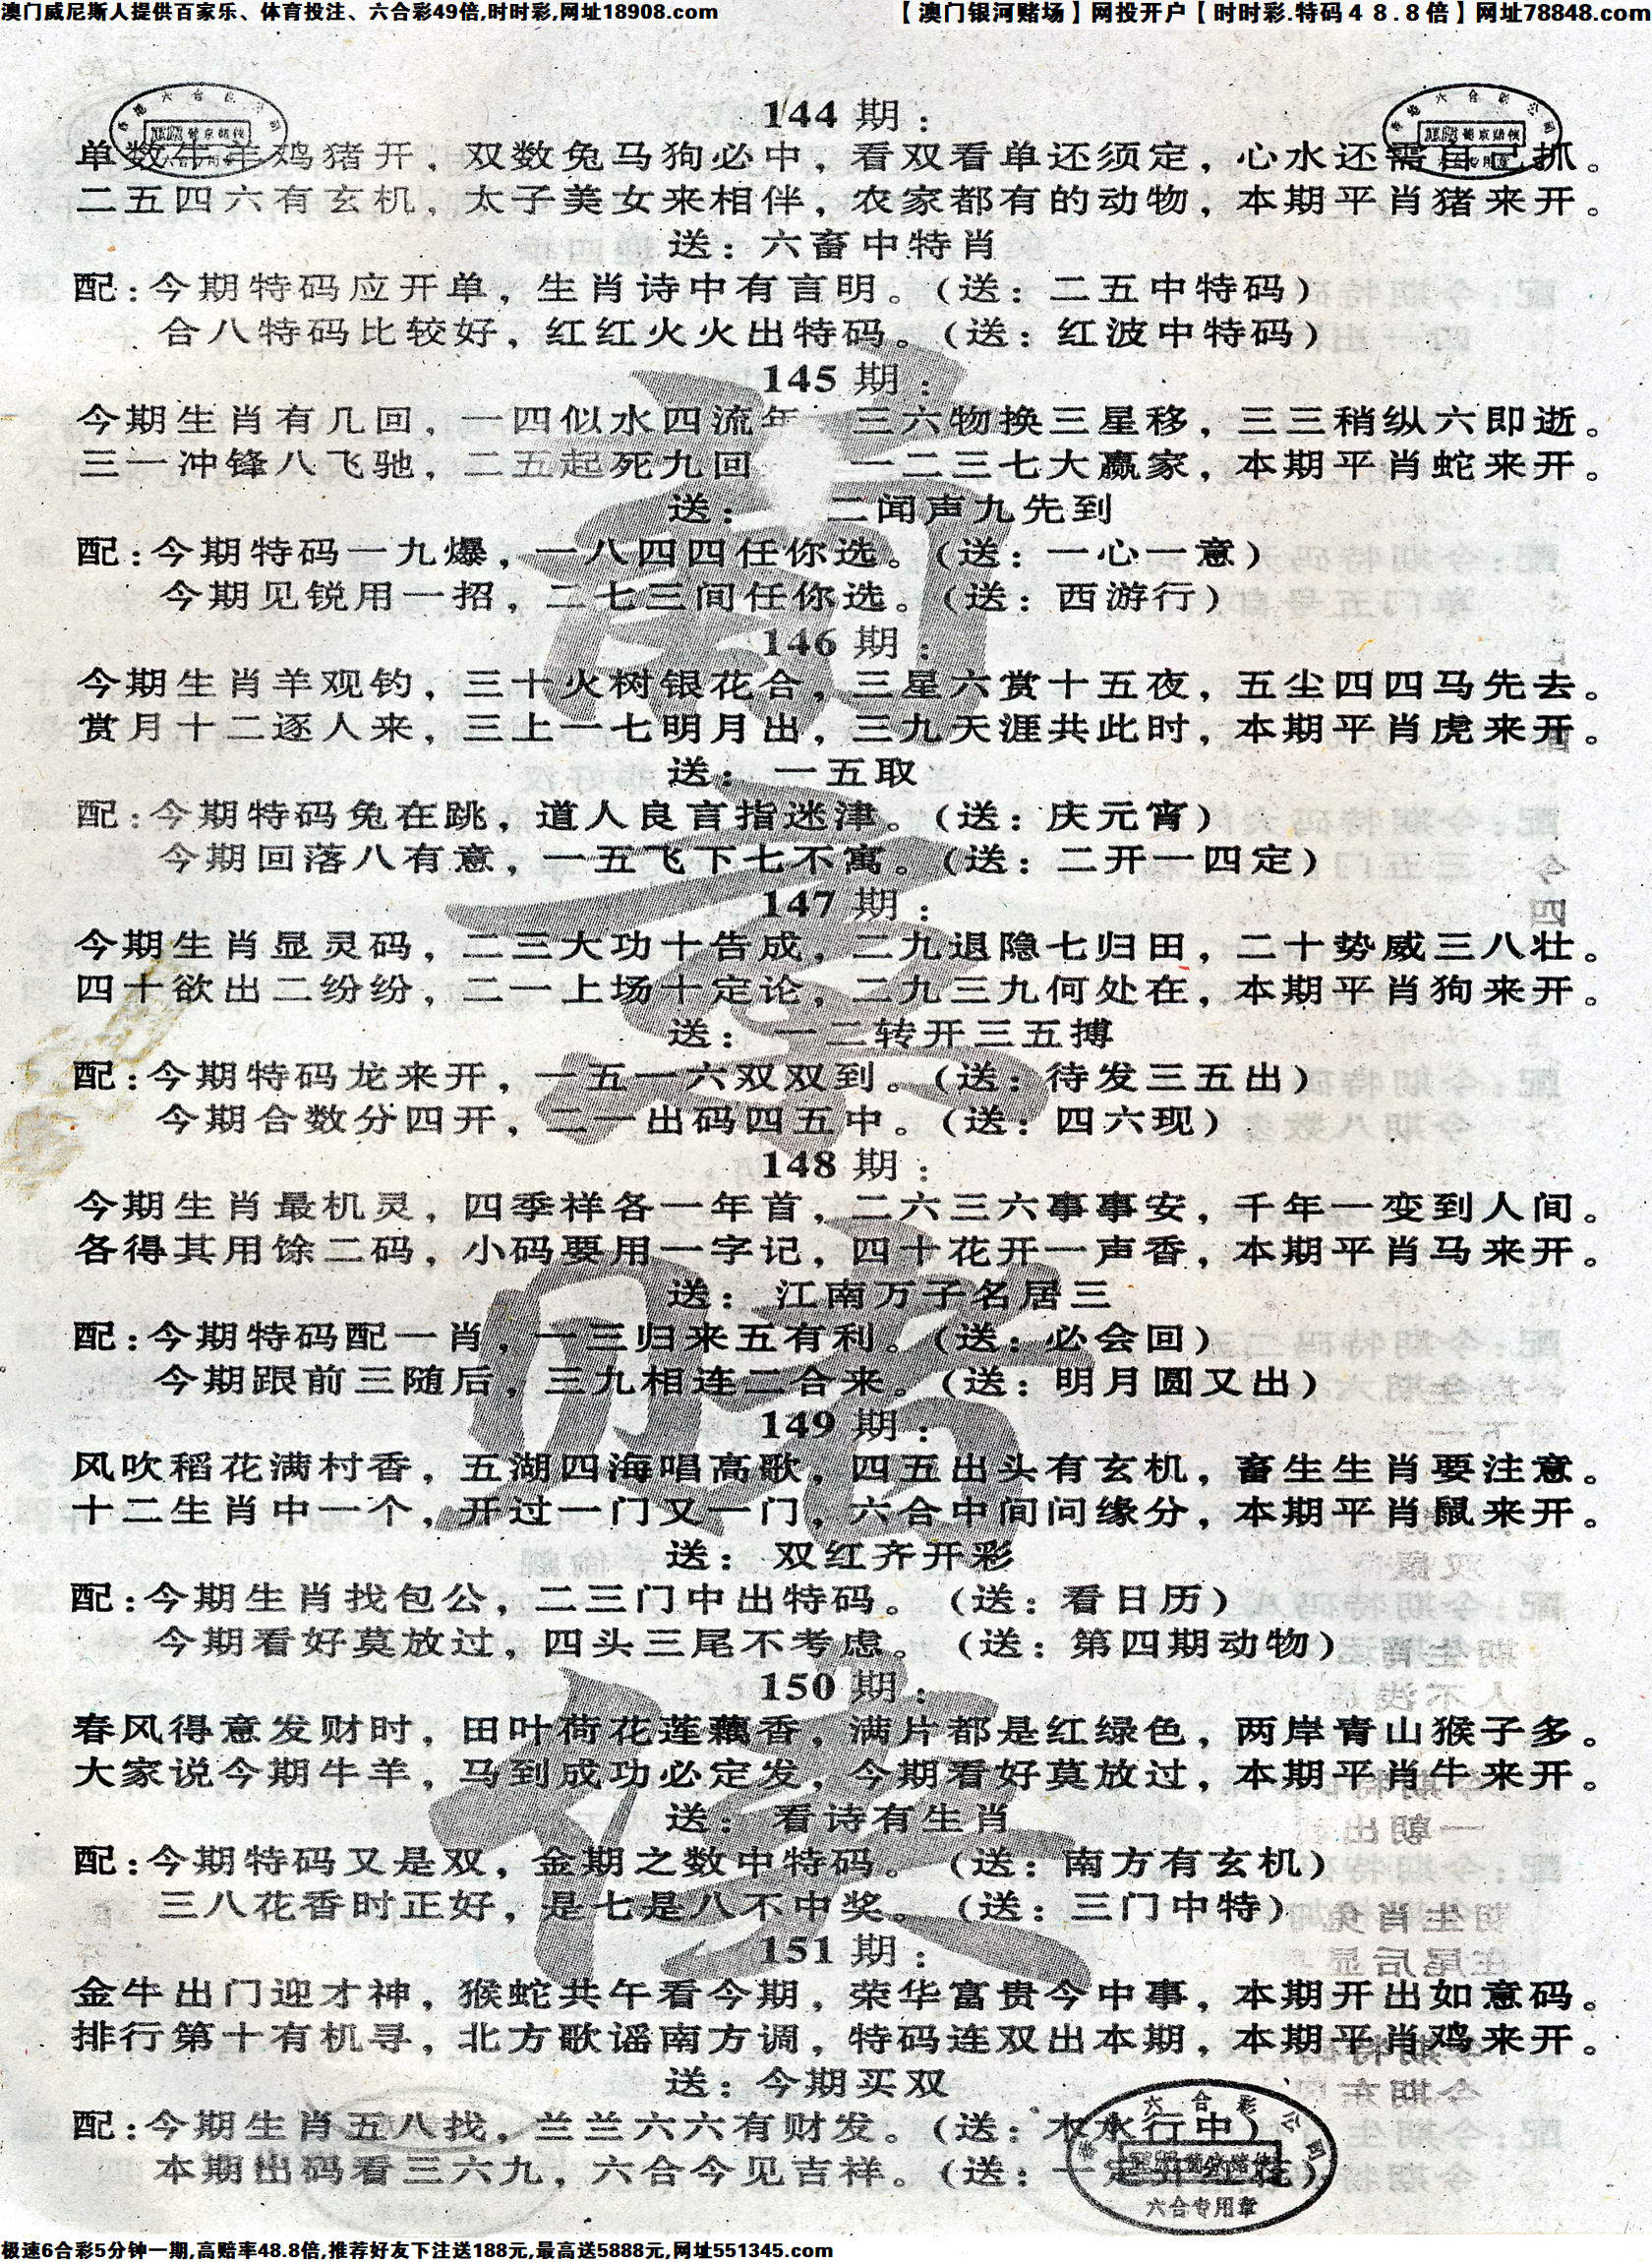 澳门威尼斯人提供百家乐、体育投注、六合彩49倍,时时彩,网址18908.com
【澳门银河赌场】网投开户【时时彩.特码４８.８倍】网址78848.com
144 期：
单数牛羊鸡猪开，双数兔马狗必中，看双看单还须定，心水还需自己抓。
二五四六有玄机，太子美女来相伴，农家都有的动物，本期平肖猪来开。
送：六畜中特肖
配：今期特码应开单，生肖诗中有言明。（送：二五中特码）
合八特码比较好，红红火火出特码。（送：红波中特码）
145 期：
今期生肖有几回，一四似水四流年 三六物换三星移，三三稍纵六即逝。
三一冲锋八飞驰，二五起死九回 一二三七大赢家，本期平肖蛇来开。
送： 二闻声九先到
配：今期特码一九爆，一八四四任你选。（送：一心一意）
今期见锐用一招，二七三间任你选。（送：西游行）
146 期：
今期生肖羊观钓，三十火树银花合，三星六赏十五夜，五尘四四马先去。
赏月十二逐人来，三上一七明月出，三九天涯共此时，本期平肖虎来开。
送：一五取
配：今期特码兔在跳，道人良言指迷津。（送：庆元宵）
今期回落八有意，一五飞下七不寓。（送：二开一四定）
147 期：
今期生肖显灵码，二三大功十告成，二九退隐七归田，二十势威三八壮。
四十欲出二纷纷，二一上场十定论，二九三九何处在，本期平肖狗来开。
送：一二转开三五搏
配：今期特码龙来开，一五一六双双到。（送：待发三五出）
今期合数分四开，二一出码四五中。（送：四六现）
148 期：
今期生肖最机灵，四季祥各一年首，二六三六事事安，千年一变到人间。
各得其用馀二码，小码要用一字记，四十花开一声香，本期平肖马来开。
送：江南万子名居三
配：今期特码配一肖，一三归来五有利。（送：必会回）
今期跟前三随后，三九相连二合来。（送：明月圆又出）
149 期：
风吹稻花满村香，五湖四海唱高歌，四五出头有玄机，畜生生肖要注意。
十二生肖中一个，开过一门又一门，六合中间问缘分，本期平肖鼠来开。
送：双红齐开彩
配：今期生肖找包公，二三门中出特码。（送：看日历）
今期看好莫放过，四头三尾不考虑。（送：第四期动物）
150 期：
春风得意发财时，田叶荷花莲藕香，满片都是红绿色，两岸青山猴子多。
大家说今期牛羊，马到成功必定发，今期看好莫放过，本期平肖牛来开。
送：看诗有生肖
配：今期特码又是双，金期之数中特码。（送：南方有玄机）
三八花香时正好，是七是八不中奖。（送：三门中特）
151 期：
金牛出门迎才神，猴蛇共午看今期，荣华富贵今中事，本期开出如意码。
排行第十有机寻，北方歌谣南方调，特码连双出本期，本期平肖鸡来开。
送：今期买双
配：今期生肖五八找，兰兰六六有财发。（送：木水行中）
本期出码看三六九，六合今见吉祥。（送：一定开红花）
六合专用章
极速6合彩5分钟一期,高赔率48.8倍,推荐好友下注送188元,最高送5888元,网址551345.com